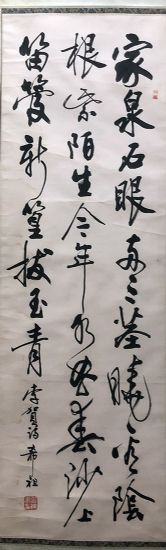 家泉石眼两三茎晓看阴
根紫陌生今年水曲春沙上
笛管新篁拔玉青
李贺诗 希祖